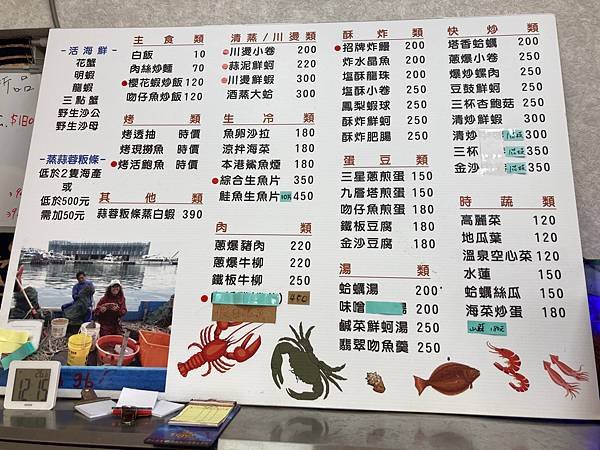 -活海鮮-
花蟹
明蝦
龍蝦
三點蟹
野生沙公
野生沙母
-蒸蒜蓉粄條-
低於2隻海產
或
低於500元
需加50元
主食類
白飯 10
肉絲炒麵 70
櫻花蝦炒飯 120
吻仔魚炒飯 120
烤類
烤透抽 時價
烤現撈魚 時價
烤活鮑魚 時價
其他類
蒜蓉粄條蒸白蝦 390
清蒸/川燙類
川燙小卷 200
蒜泥鮮蚵 220
川燙鮮蝦 300
酒蒸大蛤 300
生冷類
魚卵沙拉 180
涼拌海菜 180
本港鯊魚煙 180
綜合生魚片 350
鮭魚生魚片 450
肉類
蔥爆豬肉 220
蔥爆牛柳 250
鐵板牛柳 250
450
酥炸類
招牌炸饅 200
炸水晶魚 200
塩酥龍珠 200
塩酥小卷 200
鳳梨蝦球 200
酥炸鮮蚵 200
酥炸肥腸 200
蛋豆類
三星蔥煎蛋 150
九層塔煎蛋 150
吻仔魚煎蛋 180
鐵板豆腐 180
金沙豆腐 180
湯類
蛤蠣湯 200
味噌 200
鹹菜鮮蚵湯 250
翡翠吻魚羹 250
快炒類
塔香蛤蠣 200
蔥爆小卷 200
爆炒螺肉 250
豆鼓鮮蚵 200
三杯杏鮑菇 250
清炒鮮蝦 350
清炒 300
三杯 350
金沙 350
時蔬類
高麗菜 120
地瓜葉 120
溫泉空心菜 120
水蓮 150
蛤蠣絲瓜 150
海菜炒蛋 180
山蘇 180元
$180
12:15